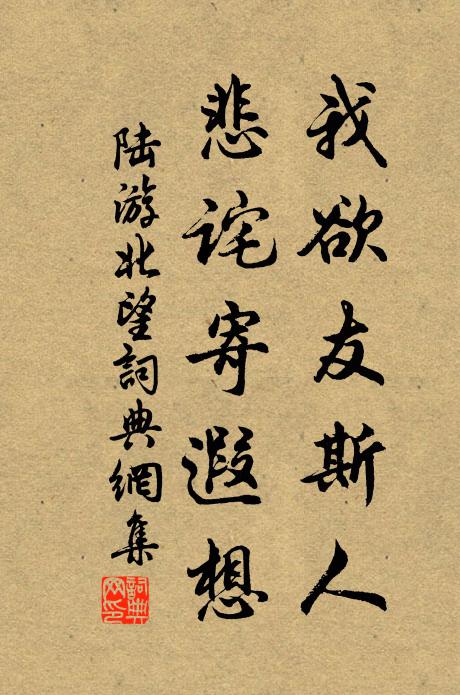 我欲友斯人
悲诧寄遐想
陆游北望詞典網集
詞典网印